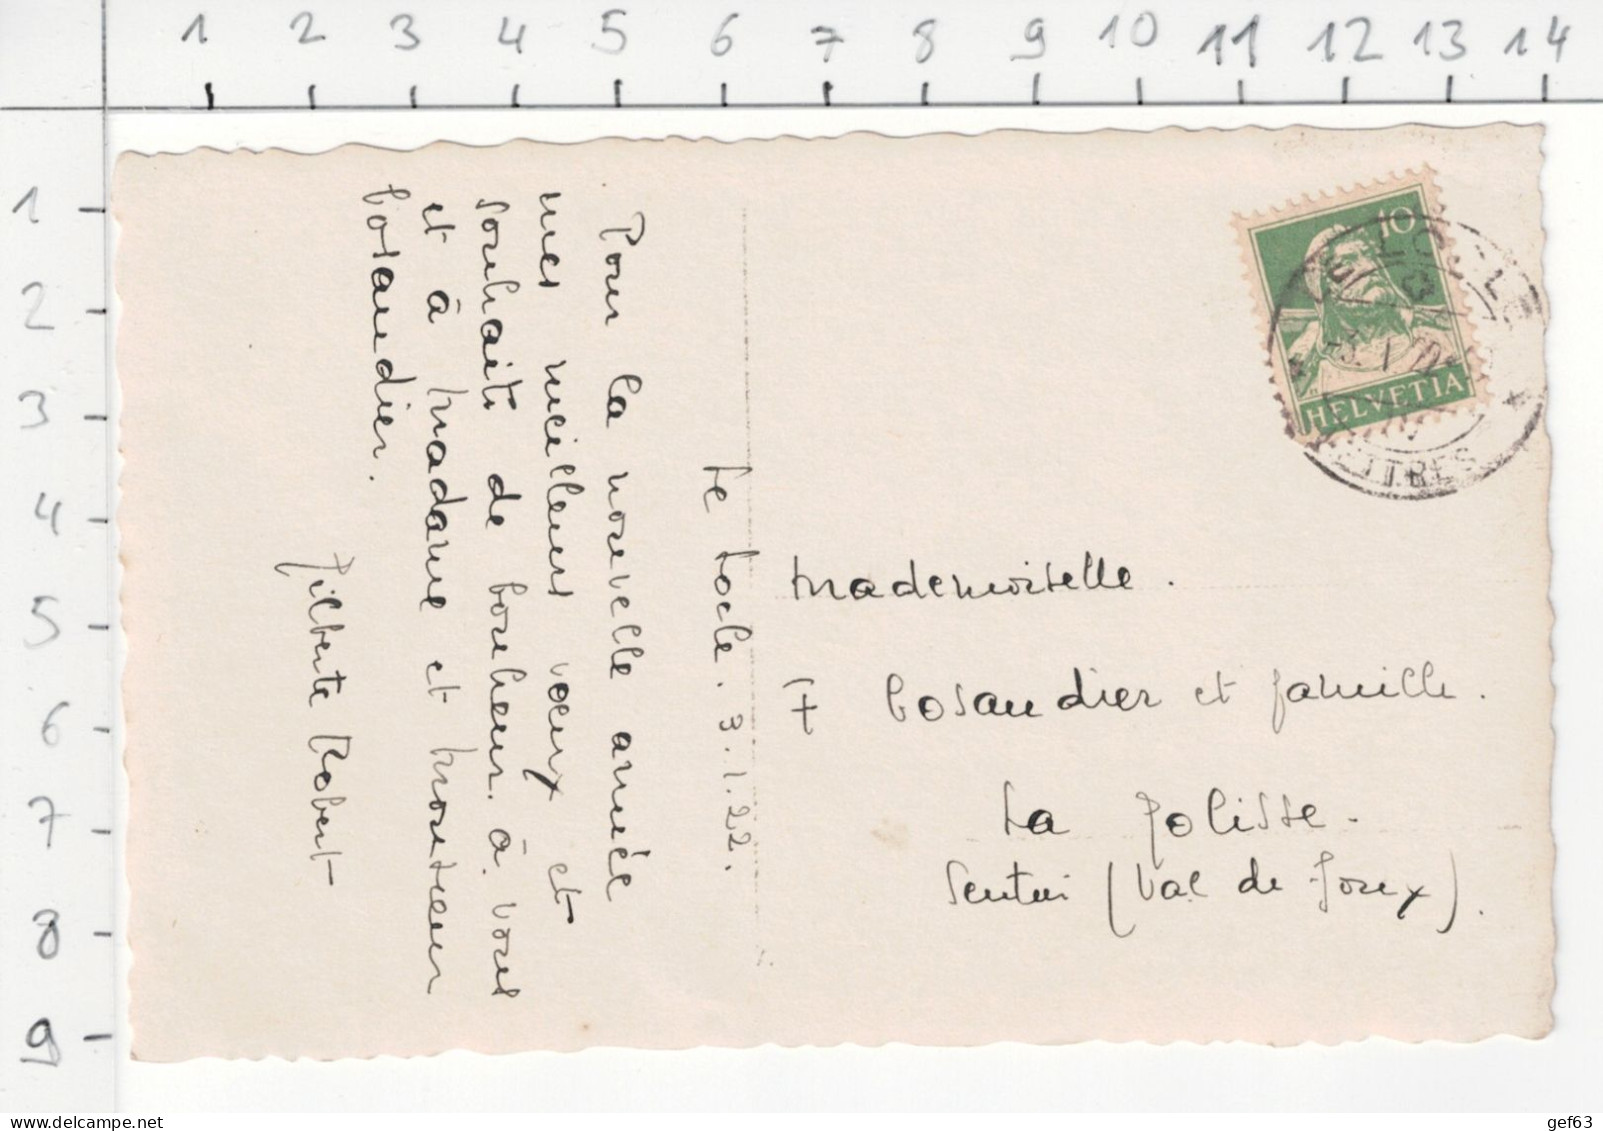 1 2 3 4 5 6 7 8 9 10 11 12 13 14
1
2
3
4
5
6
7
8
9
Le Locle. 3.1.22.
Pour la nouvelle année
mes meilleurs voeux et
souhaits de bonheur. à vous
et à Madame et Monsieur
Golaudier.
Gilberte Robert
10
HELVETIA
LE LOCLE
LETTRES
Mademoiselle.
Golaudier et famille.
La Golisse.
Sentier (Val de Joux).
gef63